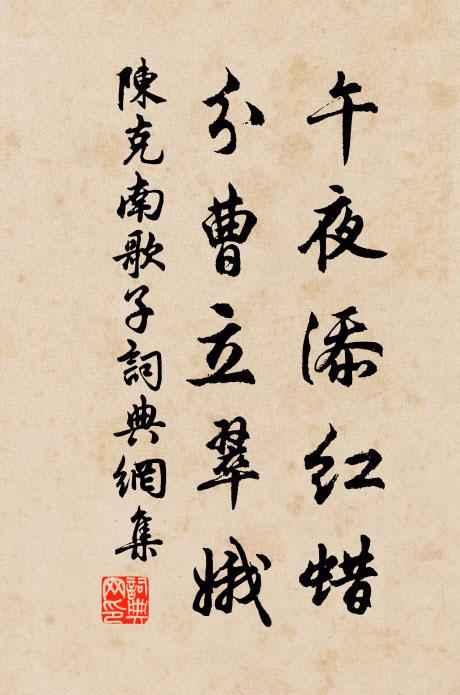 午夜添红蜡
分曹立翠娥
陳克南歌子詞典網集
詞典
网印